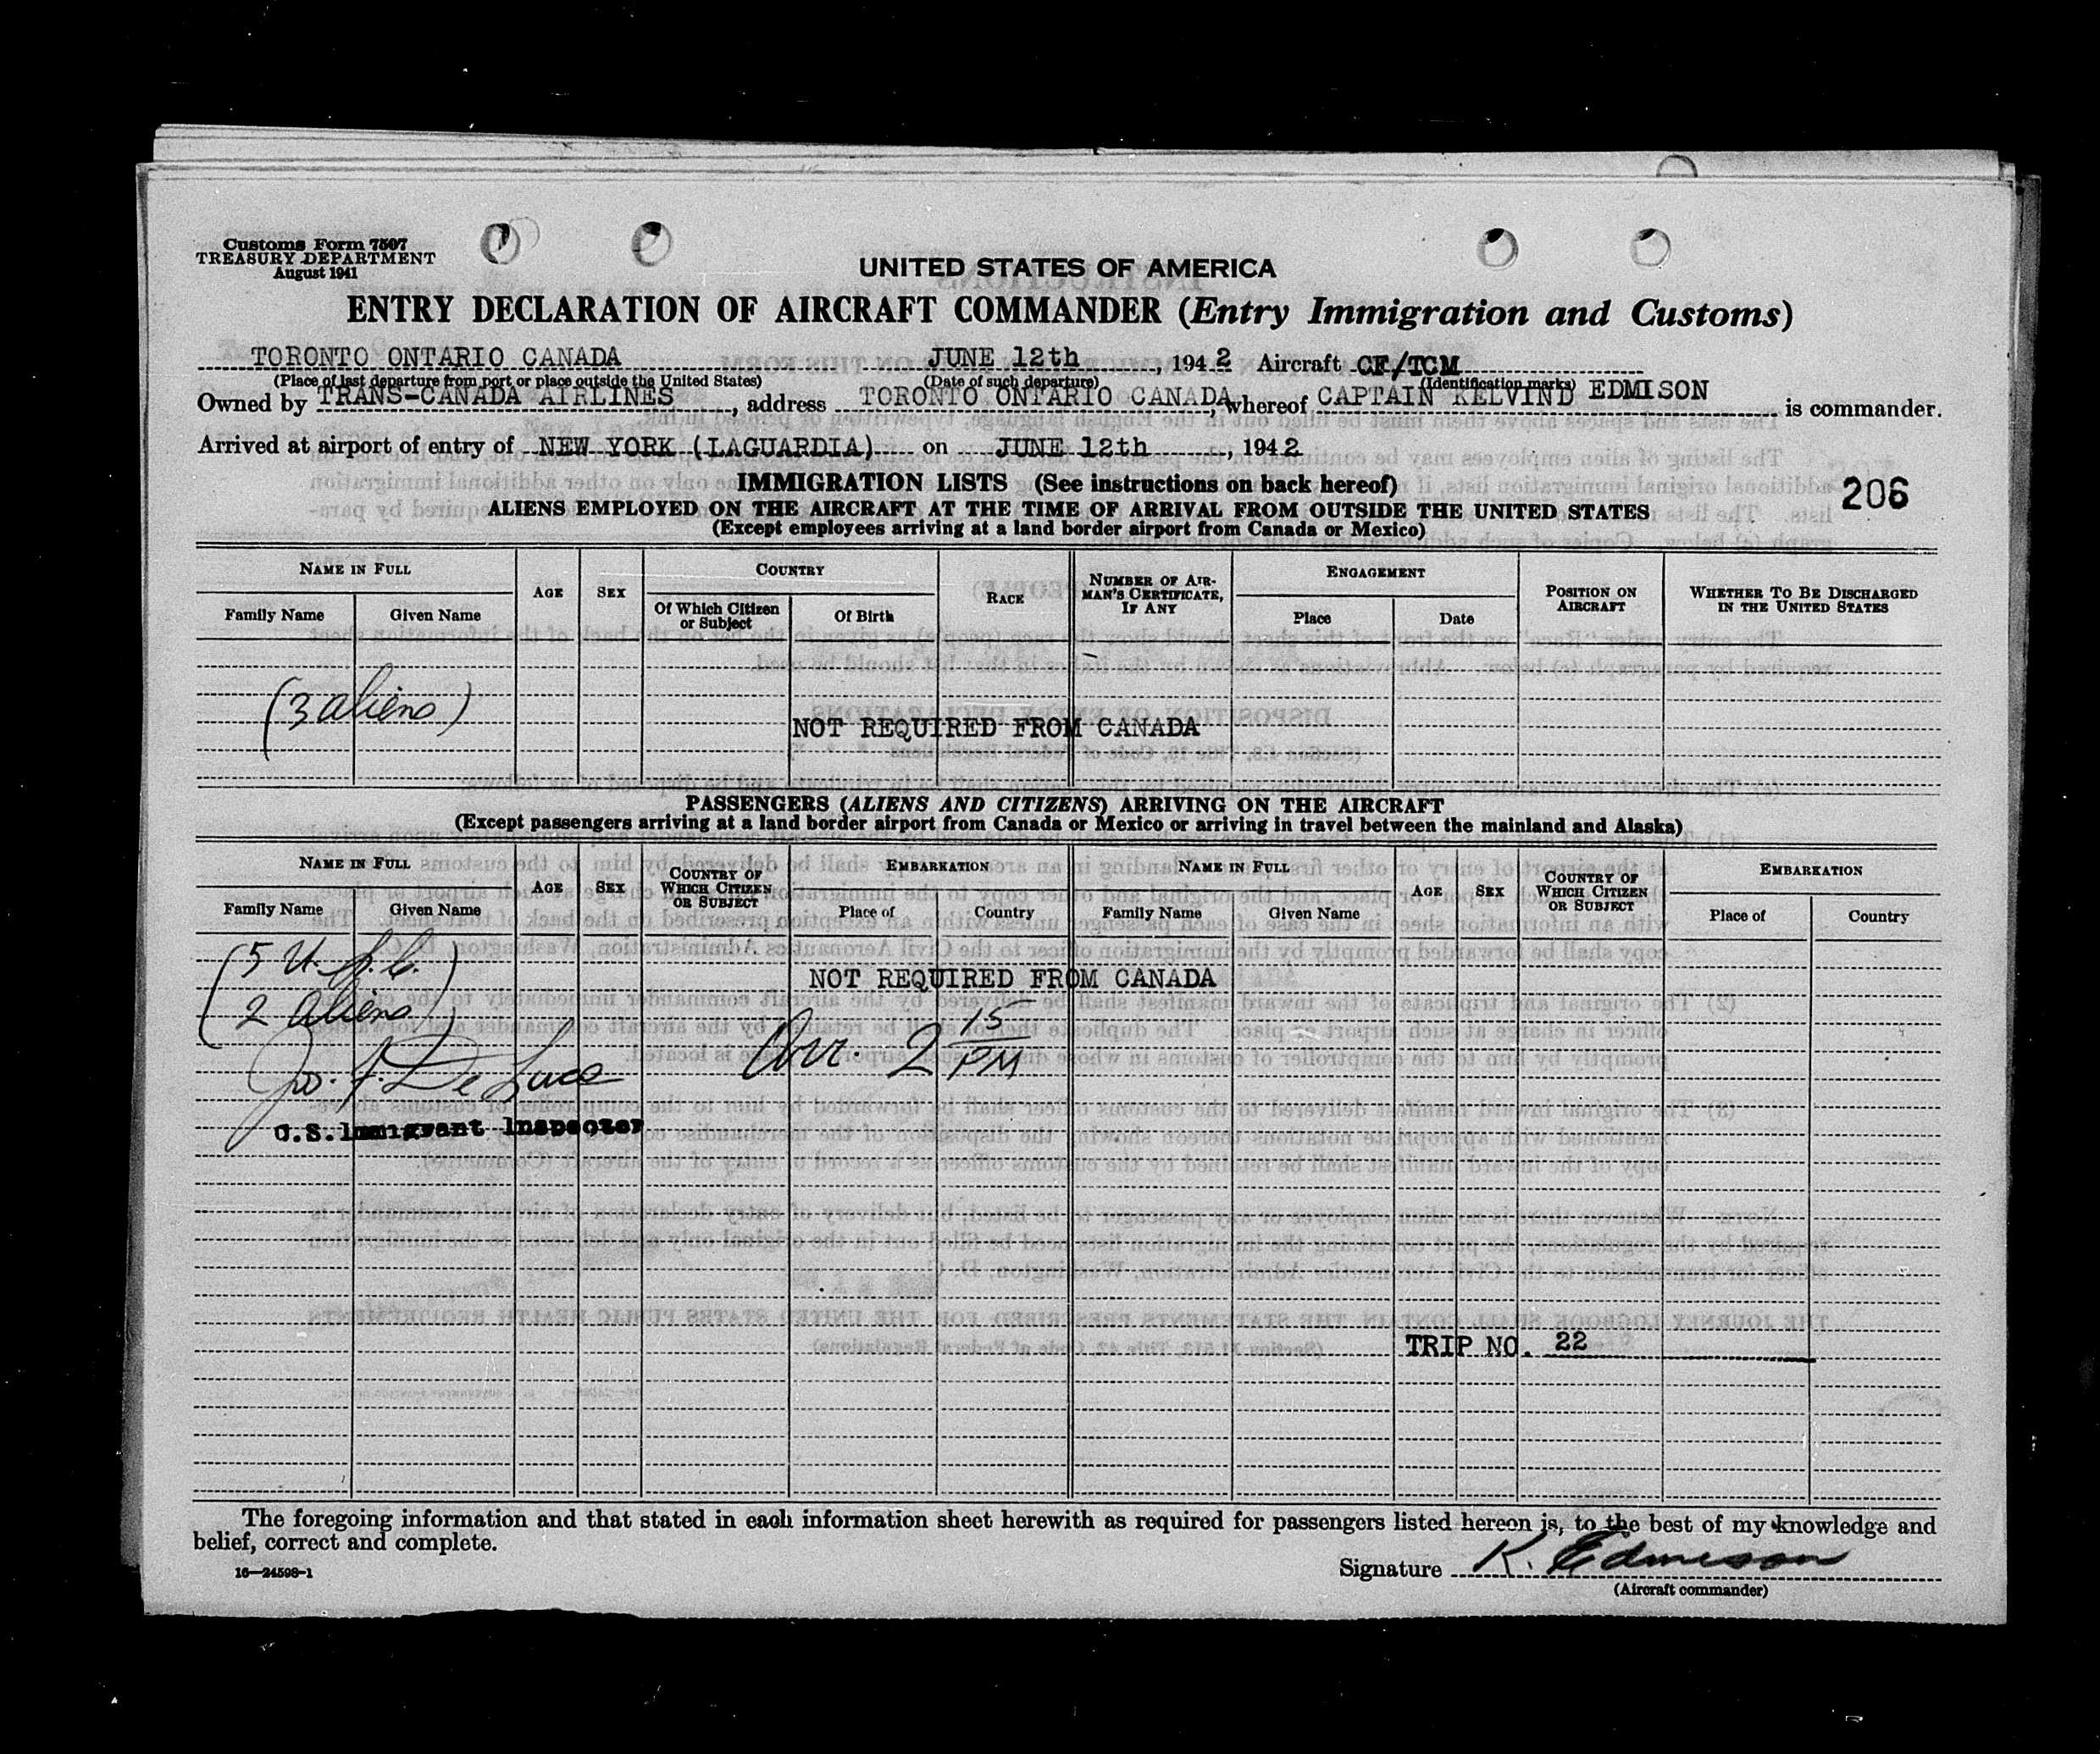 Customs Form 7507
TREASURY DEPARTMENT
August 1941
UNITED STATES OF AMERICA
ENTRY DECLARATION OF AIRCRAFT COMMANDER (Entry Immigration and Customs)
TORONTO ONTARIO CANADA JUNE 12th, 1942 Aircraft CF/TCM
(Place of last departure from port or place outside the United States) (Date of such departure) (Identification marks)
Owned by TRANS-CANADA AIRLINES, address TORONTO ONTARIO CANADA, whereof CAPTAIN KELVIND EDMISON is commander.
Arrived at airport of entry of NEW YORK (LAGUARDIA) on JUNE 12th, 1942
IMMIGRATION LISTS (See instructions on back hereof)
206
ALIENS EMPLOYED ON THE AIRCRAFT AT THE TIME OF ARRIVAL FROM OUTSIDE THE UNITED STATES
(Except employees arriving at a land border airport from Canada or Mexico)
NAME IN FULL
Family Name Given Name
AGE SEX
COUNTRY
Of Which Citizen or Subject Of Birth
RACE
NUMBER OF AIRMAN'S CERTIFICATE, IF ANY
ENGAGEMENT
Place Date
POSITION ON AIRCRAFT
WHETHER TO BE DISCHARGED IN THE UNITED STATES
(3 aliens)
NOT REQUIRED FROM CANADA
PASSENGERS (ALIENS AND CITIZENS) ARRIVING ON THE AIRCRAFT
(Except passengers arriving at a land border airport from Canada or Mexico or arriving in travel between the mainland and Alaska)
NAME IN FULL
Family Name Given Name
AGE SEX
COUNTRY OF WHICH CITIZEN OR SUBJECT
EMBARKATION
Place of Country
NAME IN FULL
Family Name Given Name
AGE SEX
COUNTRY OF WHICH CITIZEN OR SUBJECT
EMBARKATION
Place of Country
(5 U.S.C.
2 Aliens)
NOT REQUIRED FROM CANADA
Arr. 2 15 PM
Jos. F. De Luca
U.S. Immigrant Inspector
TRIP NO. 22
The foregoing information and that stated in each information sheet herewith as required for passengers listed hereon is, to the best of my knowledge and
belief, correct and complete.
16—24598-1
Signature K. Edmison
(Aircraft commander)